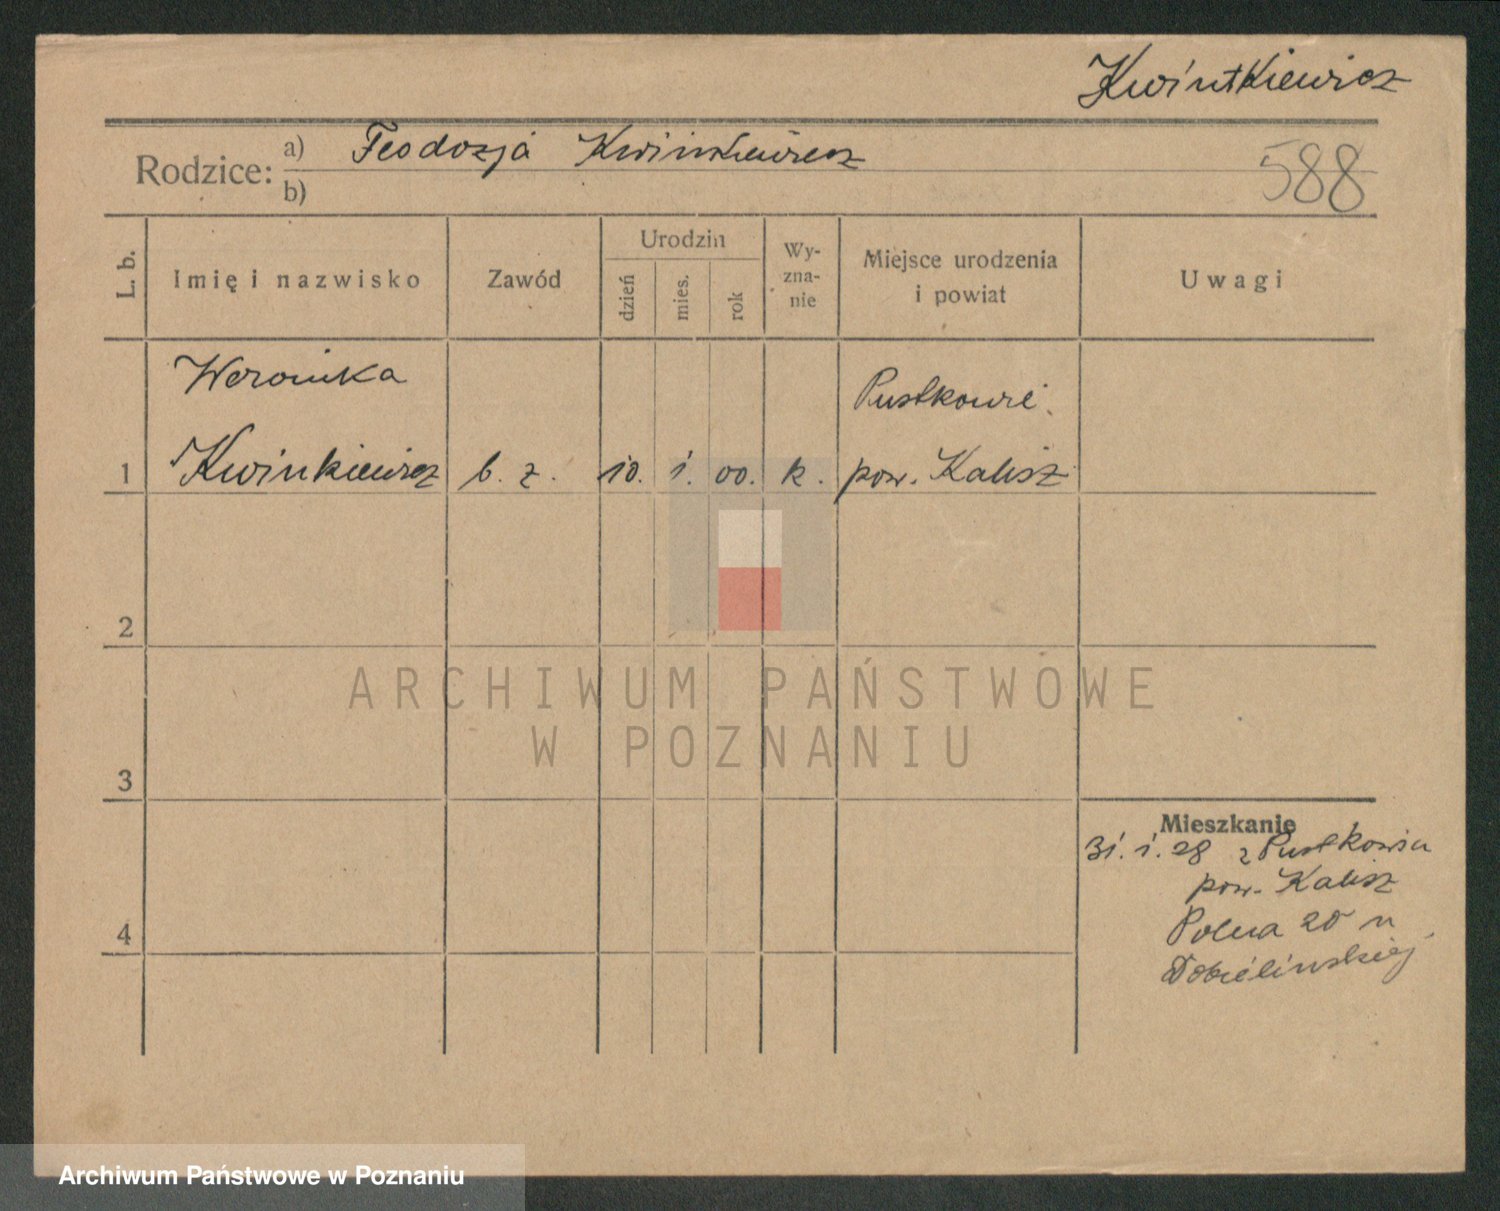 Kwintkiewicz
Rodzice: a) Teodozja Kwinkiewicz
b)
588
L. b.
Imię i nazwisko
Zawód
Urodzin
dzień
mies.
rok
Wy-
zna-
nie
Miejsce urodzenia
i powiat
Uwagi
Weronika
Pustkowie
1 Kwinkiewicz b. z. 10. 1. 00. k. pow. Kalisz
2
3
4
ARCHIWUM PAŃSTWOWE
W POZNANIU
Mieszkanie
31. 1. 28 z Pustkowia
pow. Kalisz
Polna 20 u
Dobielińskiej
Archiwum Państwowe w Poznaniu